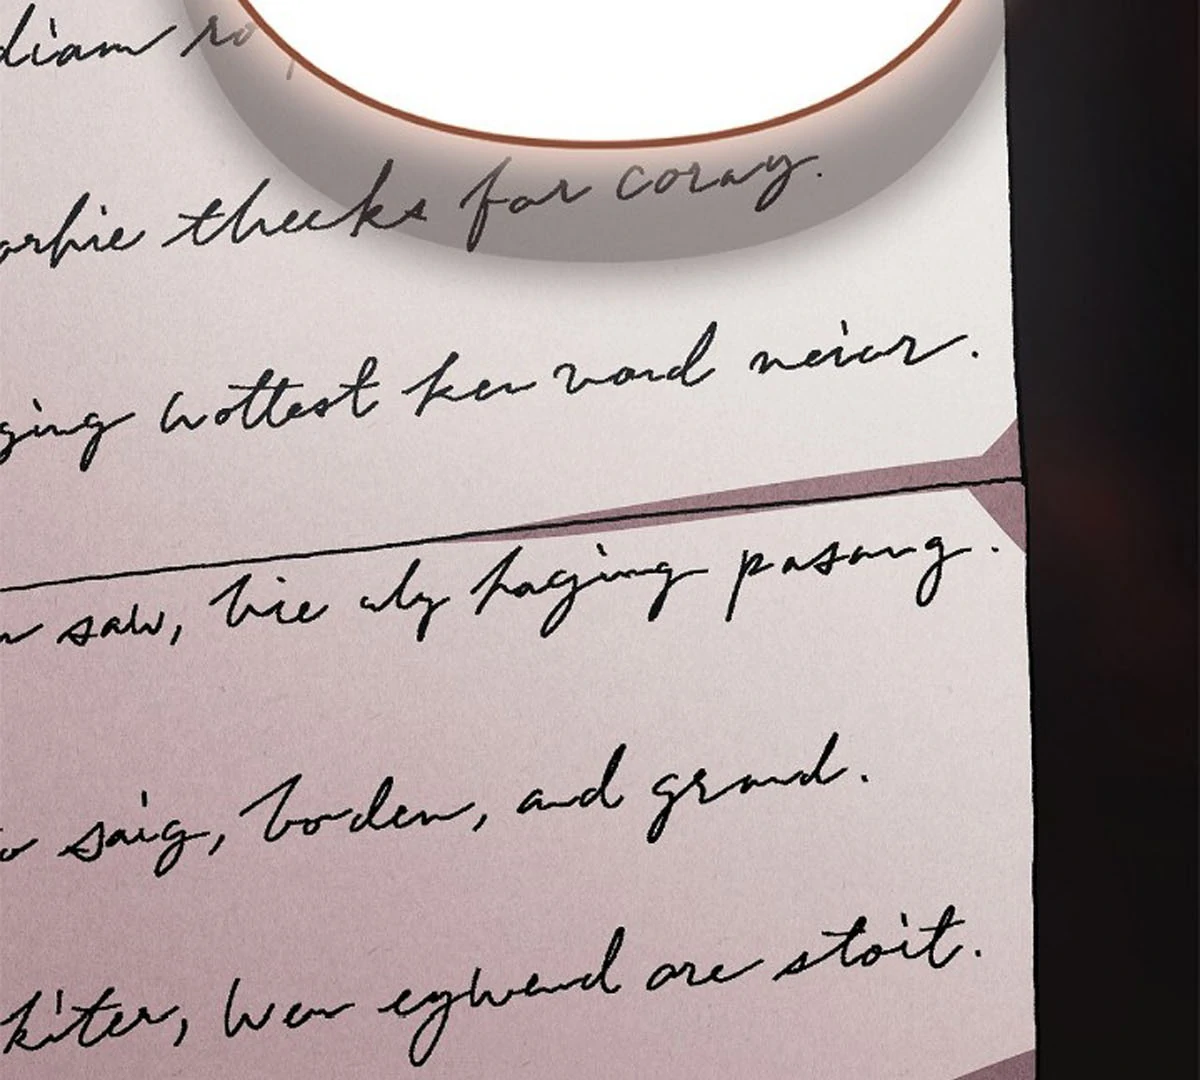 diam
thecks for coray.
ging wottest ken vord neior.
saw, bie aly haging pasang.
saig, boden, and grand.
kiter, wen eghend are stoit.